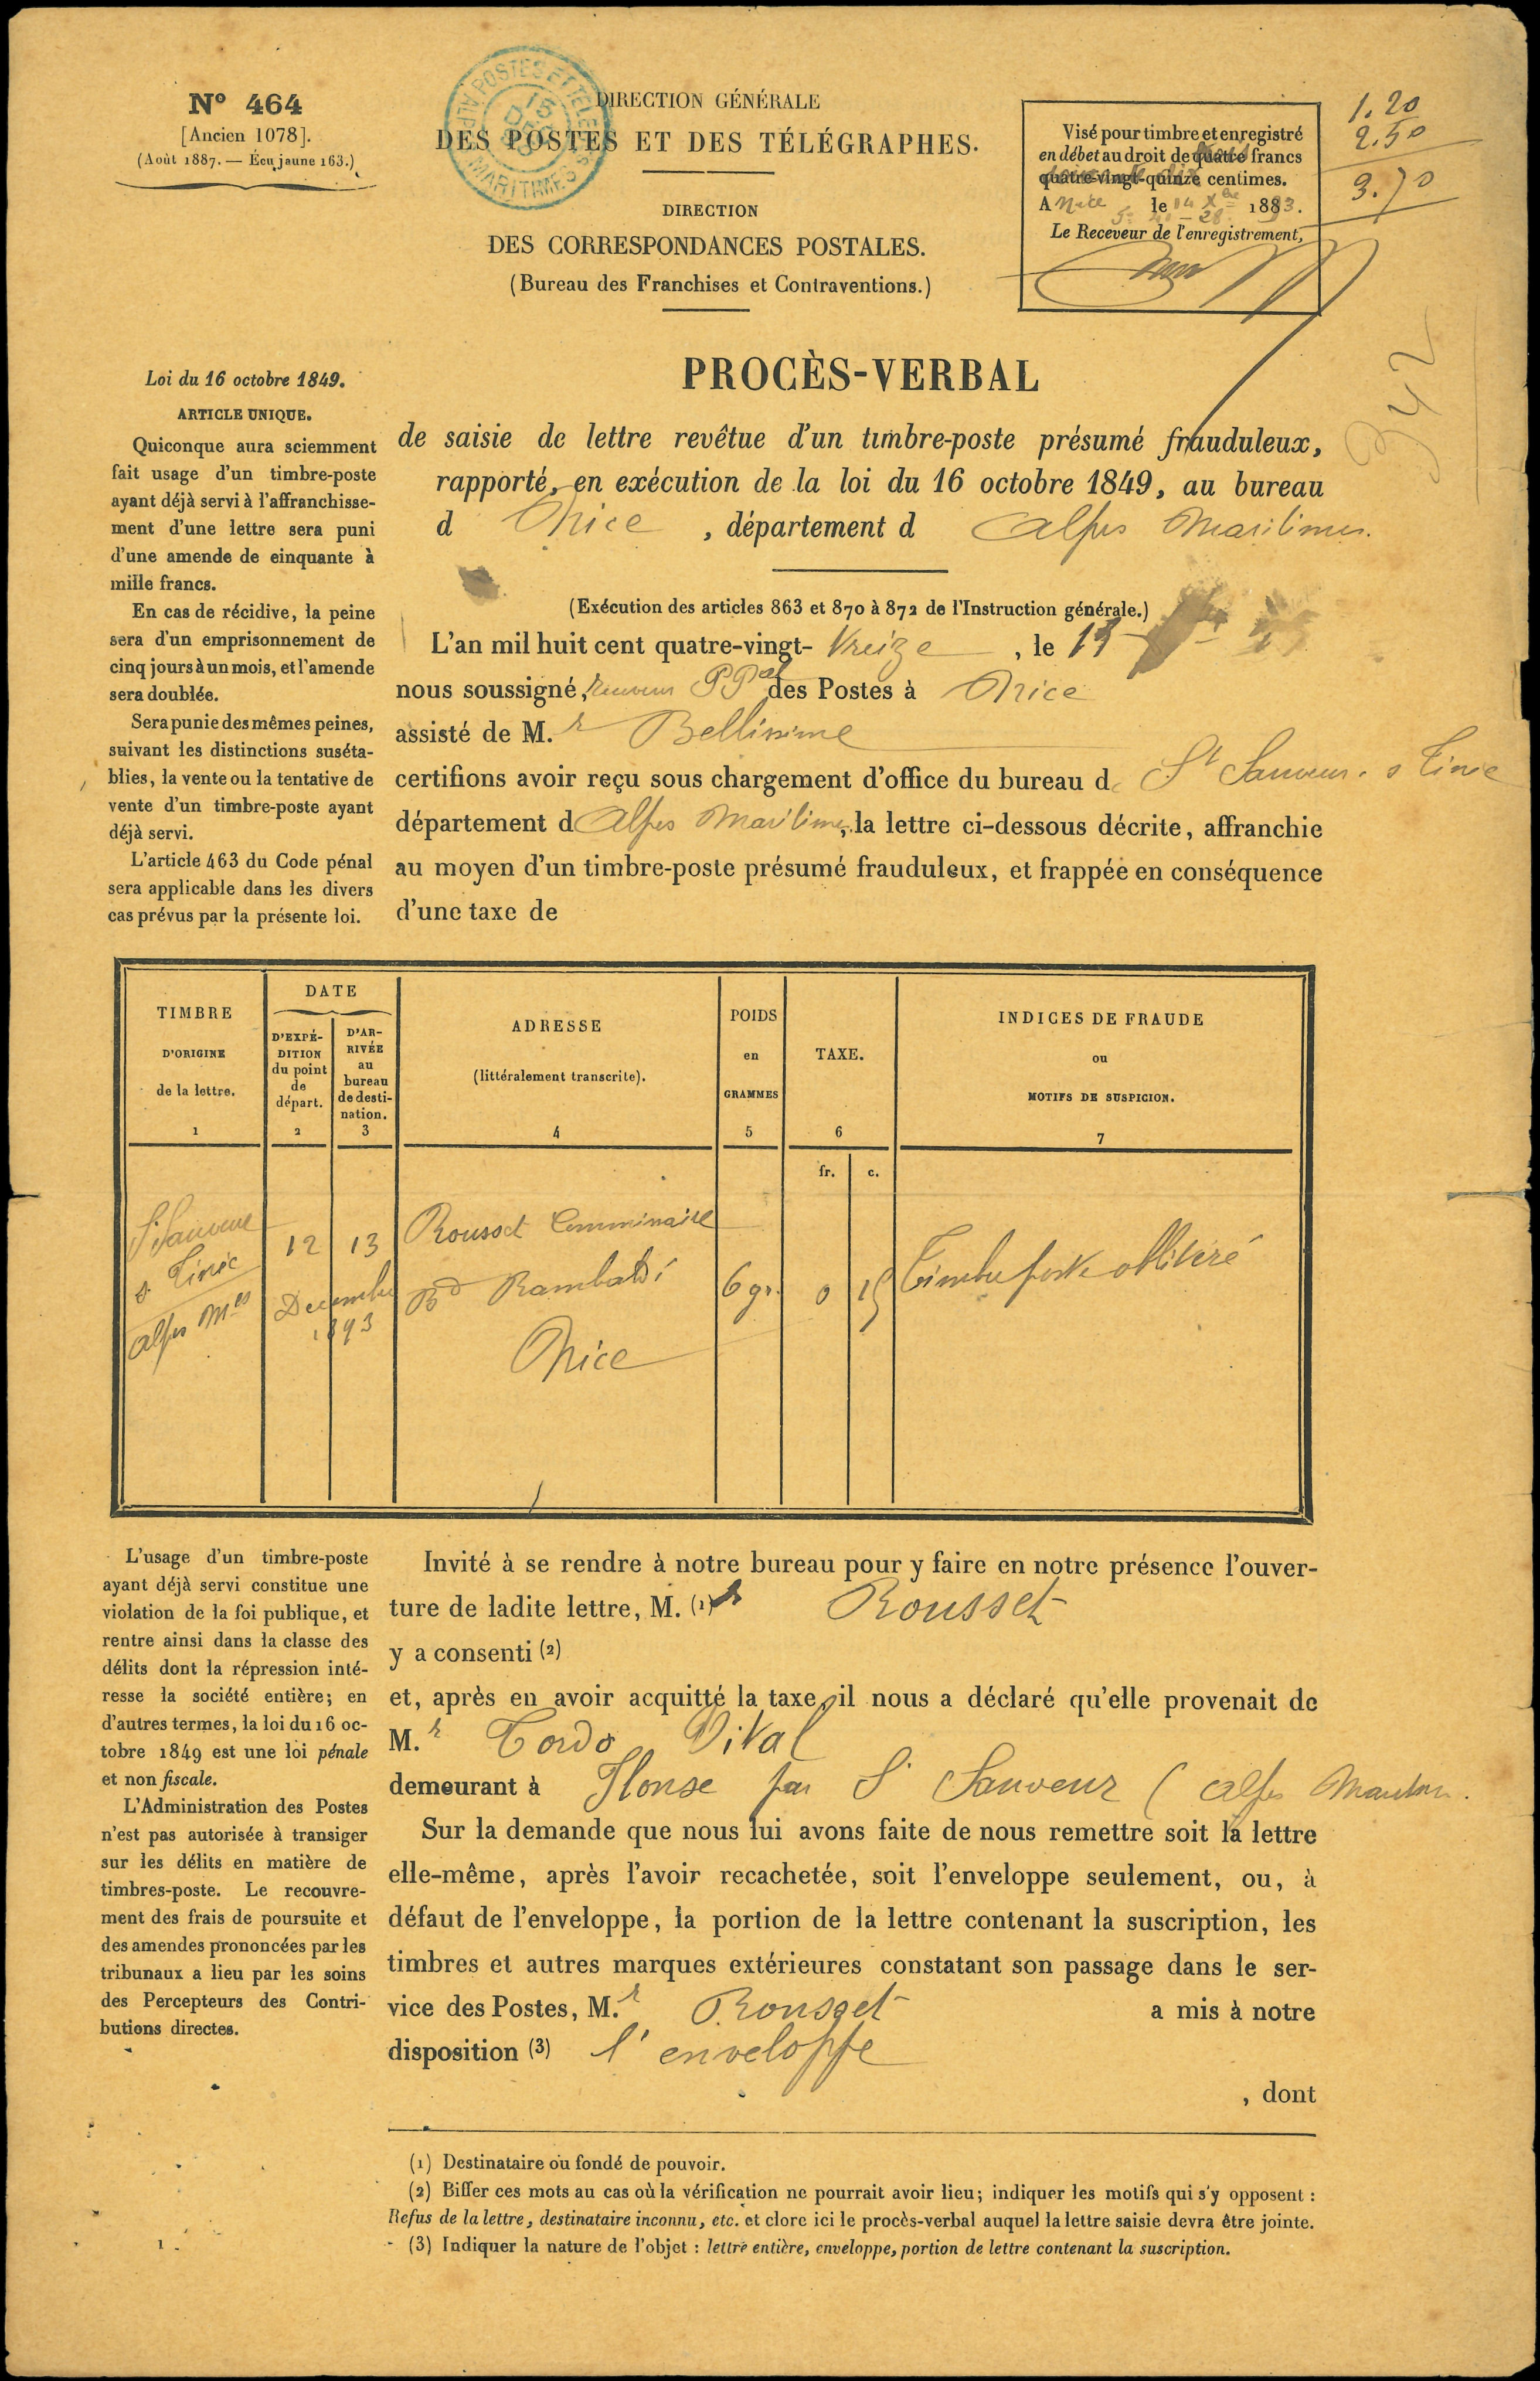 N° 464
[Ancien 1078].
(Août 1887. — Écu jaune 163.)
ALP. POSTES ET TELEG
15
DEC
93
MARITIMES
DIRECTION GÉNÉRALE
DES POSTES ET DES TÉLÉGRAPHES.
DIRECTION
DES CORRESPONDANCES POSTALES.
(Bureau des Franchises et Contraventions.)
Visé pour timbre et enregistré
en débet au droit de quatre francs
quatre-vingt-quinze centimes.
A Nice le 14 Xbre 1883.
Le Receveur de l'enregistrement,
1.20
2.50
3.70
342
PROCÈS-VERBAL
de saisie de lettre revêtue d'un timbre-poste présumé frauduleux,
rapporté, en exécution de la loi du 16 octobre 1849, au bureau
d Nice , département d Alpes Maritimes.
(Exécution des articles 863 et 870 à 872 de l'Instruction générale.)
L'an mil huit cent quatre-vingt- treize , le 13
nous soussigné, Receveur PPal des Postes à Nice
assisté de M.r Bellissime
certifions avoir reçu sous chargement d'office du bureau d St Sauveur s Tinée
département d Alpes Maritimes, la lettre ci-dessous décrite, affranchie
au moyen d'un timbre-poste présumé frauduleux, et frappée en conséquence
d'une taxe de
Loi du 16 octobre 1849.
ARTICLE UNIQUE.
Quiconque aura sciemment
fait usage d'un timbre-poste
ayant déjà servi à l'affranchisse-
ment d'une lettre sera puni
d'une amende de einquante à
mille francs.
En cas de récidive, la peine
sera d'un emprisonnement de
cinq jours à un mois, et l'amende
sera doublée.
Sera punie des mêmes peines,
suivant les distinctions suséta-
blies, la vente ou la tentative de
vente d'un timbre-poste ayant
déjà servi.
L'article 463 du Code pénal
sera applicable dans les divers
cas prévus par la présente loi.
TIMBRE
D'ORIGINE
de la lettre.
1
DATE
D'EXPÉ-
DITION
du point
de
départ.
2
D'AR-
RIVÉE
au
bureau
de desti-
nation.
3
ADRESSE
(littéralement transcrite).
4
POIDS
en
GRAMMES
5
TAXE.
6
fr. c.
INDICES DE FRAUDE
ou
MOTIFS DE SUSPICION.
7
St Sauveur
s Tinée
Alpes Mes
12 13
Decembre
1893
Rousset Comminaire
Bd Rambaldi
Nice
6 gr.
0 15
Timbre poste oblitéré
L'usage d'un timbre-poste
ayant déjà servi constitue une
violation de la foi publique, et
rentre ainsi dans la classe des
délits dont la répression inté-
resse la société entière; en
d'autres termes, la loi du 16 oc-
tobre 1849 est une loi pénale
et non fiscale.
L'Administration des Postes
n'est pas autorisée à transiger
sur les délits en matière de
timbres-poste. Le recouvre-
ment des frais de poursuite et
des amendes prononcées par les
tribunaux a lieu par les soins
des Percepteurs des Contri-
butions directes.
Invité à se rendre à notre bureau pour y faire en notre présence l'ouver-
ture de ladite lettre, M. (1) r Rousset
y a consenti (2)
et, après en avoir acquitté la taxe, il nous a déclaré qu'elle provenait de
M.r Tordo Vital
demeurant à Ilonse par St Sauveur (Alpes Maritimes.
Sur la demande que nous lui avons faite de nous remettre soit la lettre
elle-même, après l'avoir recachetée, soit l'enveloppe seulement, ou, à
défaut de l'enveloppe, la portion de la lettre contenant la suscription, les
timbres et autres marques extérieures constatant son passage dans le ser-
vice des Postes, M.r Rousset a mis à notre
disposition (3) l'enveloppe
, dont
(1) Destinataire ou fondé de pouvoir.
(2) Biffer ces mots au cas où la vérification ne pourrait avoir lieu; indiquer les motifs qui s'y opposent :
Refus de la lettre, destinataire inconnu, etc. et clore ici le procès-verbal auquel la lettre saisie devra être jointe.
(3) Indiquer la nature de l'objet : lettre entière, enveloppe, portion de lettre contenant la suscription.